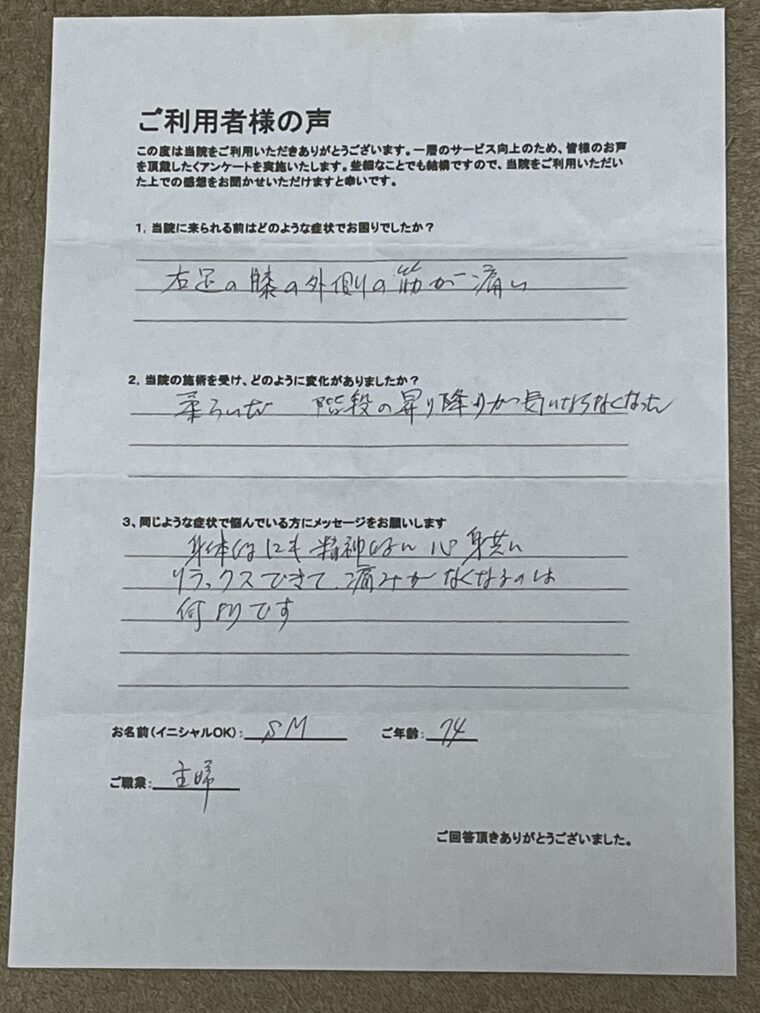 ご利用者様の声
この度は当院をご利用いただきありがとうございます。一層のサービス向上のため、皆様のお声
を頂戴したくアンケートを実施いたします。些細なことでも結構ですので、当院をご利用いただい
た上での感想をお聞かせいただけますと幸いです。
1, 当院に来られる前はどのような症状でお困りでしたか？
右足の膝の外側の筋が痛い
2, 当院の施術を受け、どのように変化がありましたか？
柔らいだ 階段の昇り降りが気にならなくなった
3、同じような症状で悩んでいる方にメッセージをお願いします
身体的にも精神的に心身共に
リラックスできて、痛みがなくなるのは
何よりです
お名前（イニシャルOK）: SM ご年齢: 74
ご職業: 主婦
ご回答頂きありがとうございました。